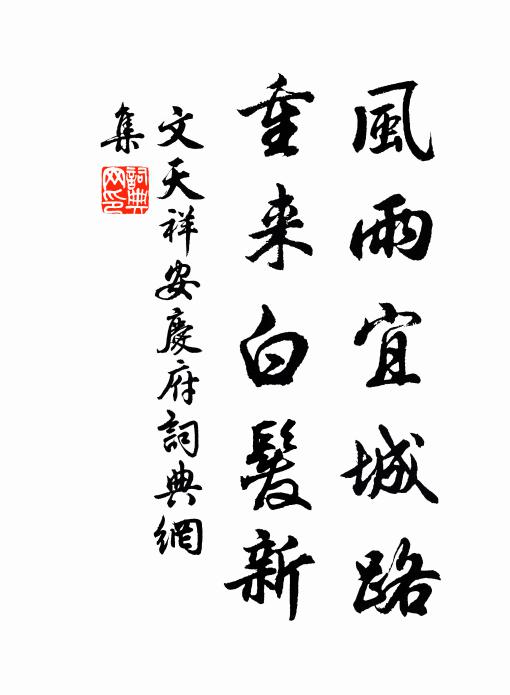 風雨宜城路
重来白髮新
文天祥安慶府詞典網
集
詞典
网印